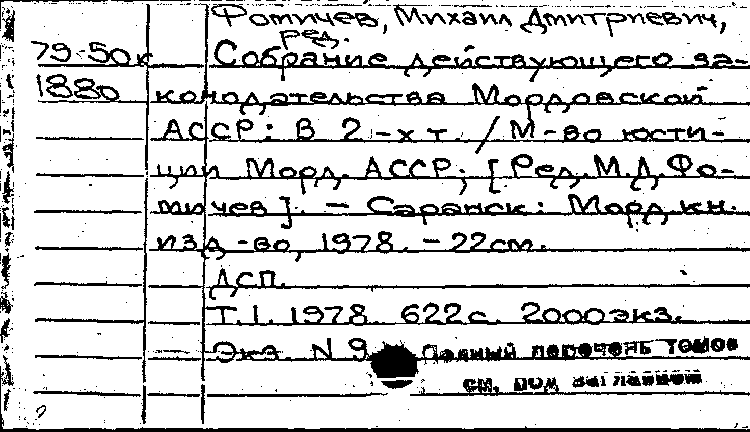 Фомичев, Михаил Дмитриевич,
ред.
79-50к Собрание действующего за-
1880 конодательства Мордовской
АССР: В 2-х т. / М-во юсти-
ции Морд. АССР; [Ред. М.Д. Фо-
мичев]. - Саранск: Морд. кн.
изд-во, 1978. - 22см.
ДСП.
Т.1. 1978. 622с. 2000экз.
Экз. N 9 Полный перечень томов
см. под заглавием